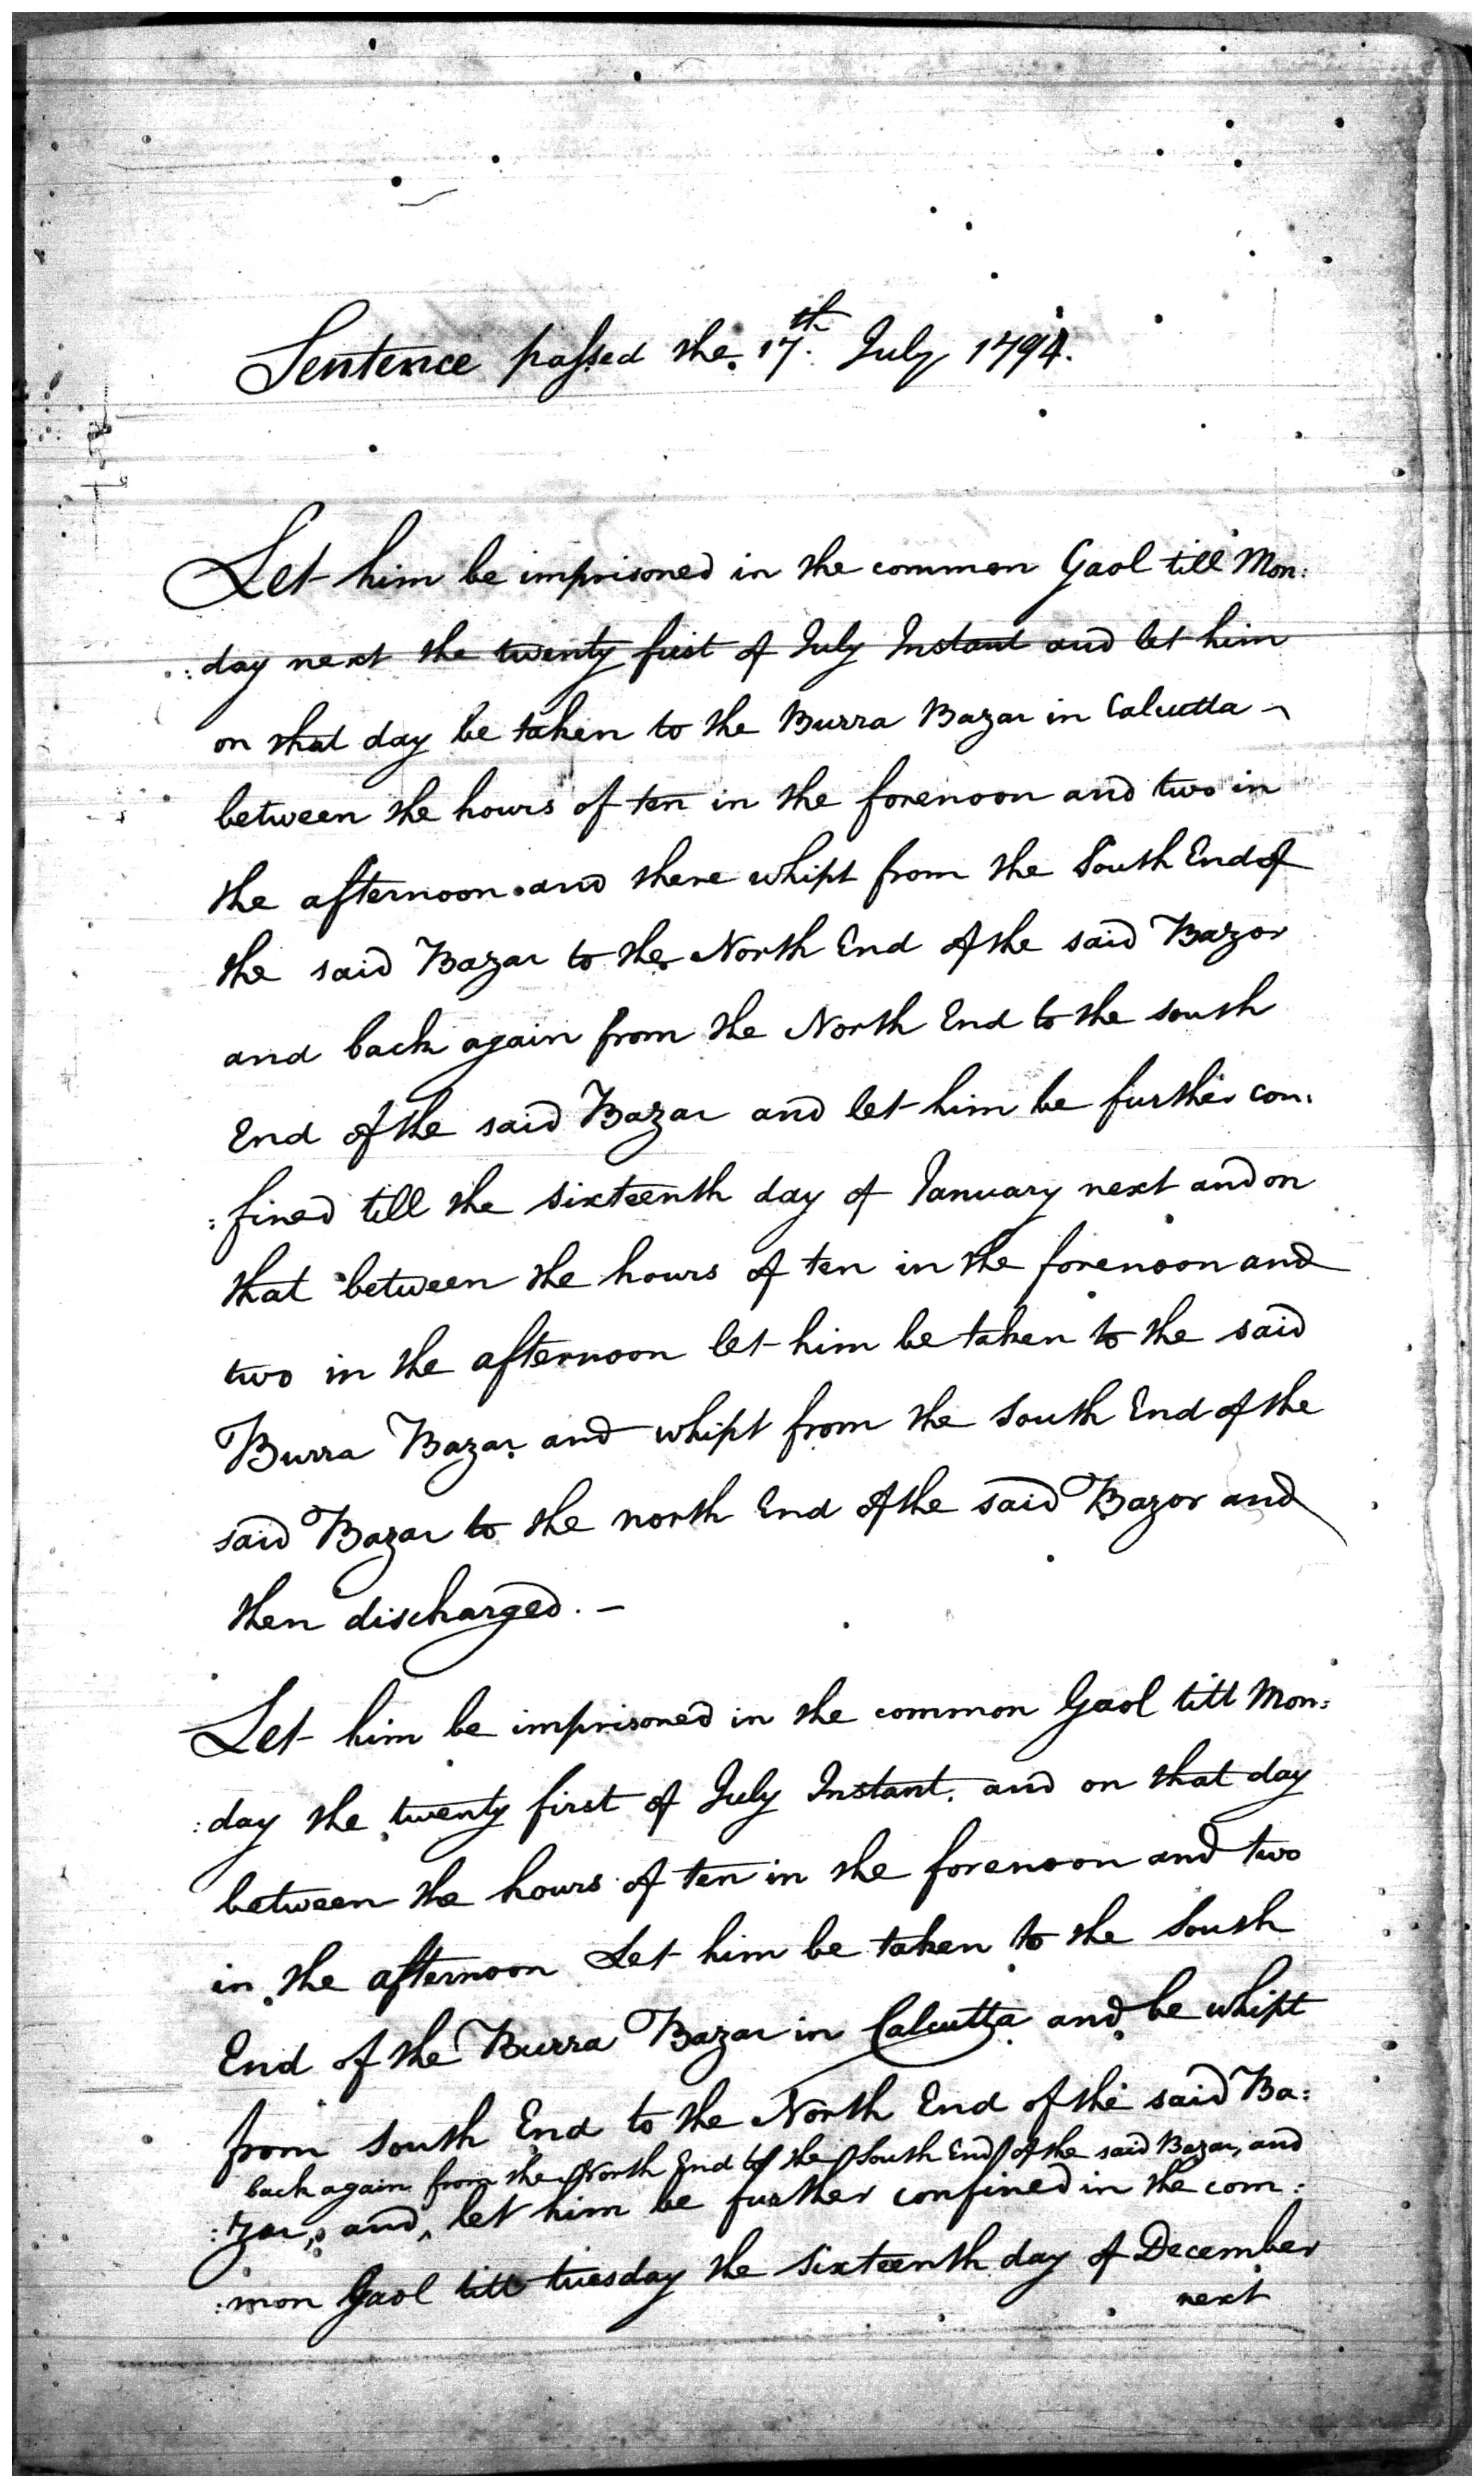 Sentence passed the 17th. July 1794.
Let him be imprisoned in the common Gaol till Mon:
:day next the twenty first of July Instant and let him
on that day be taken to the Burra Bazar in Calcutta
between the hours of ten in the forenoon and two in
the afternoon and there whipt from the South End of
the said Bazar to the North End of the said Bazar
and back again from the North End to the south
End of the said Bazar and let him be further con:
:fined till the sixteenth day of January next and on
that between the hours of ten in the forenoon and
two in the afternoon let him be taken to the said
Burra Bazar and whipt from the South End of the
said Bazar to the north End of the said Bazar and
then discharged. -
Let him be imprisoned in the common Gaol till Mon:
:day the twenty first of July Instant. and on that day
between the hours of ten in the forenoon and two
in the afternoon Let him be taken to the South
End of the Burra Bazar in Calcutta and be whipt
from South End to the North End of the said Ba:
back again from the North End to the South End of the said Bazar, and
:zar, and, let him be further confined in the com:
:mon Gaol till tuesday the sixteenth day of December
next